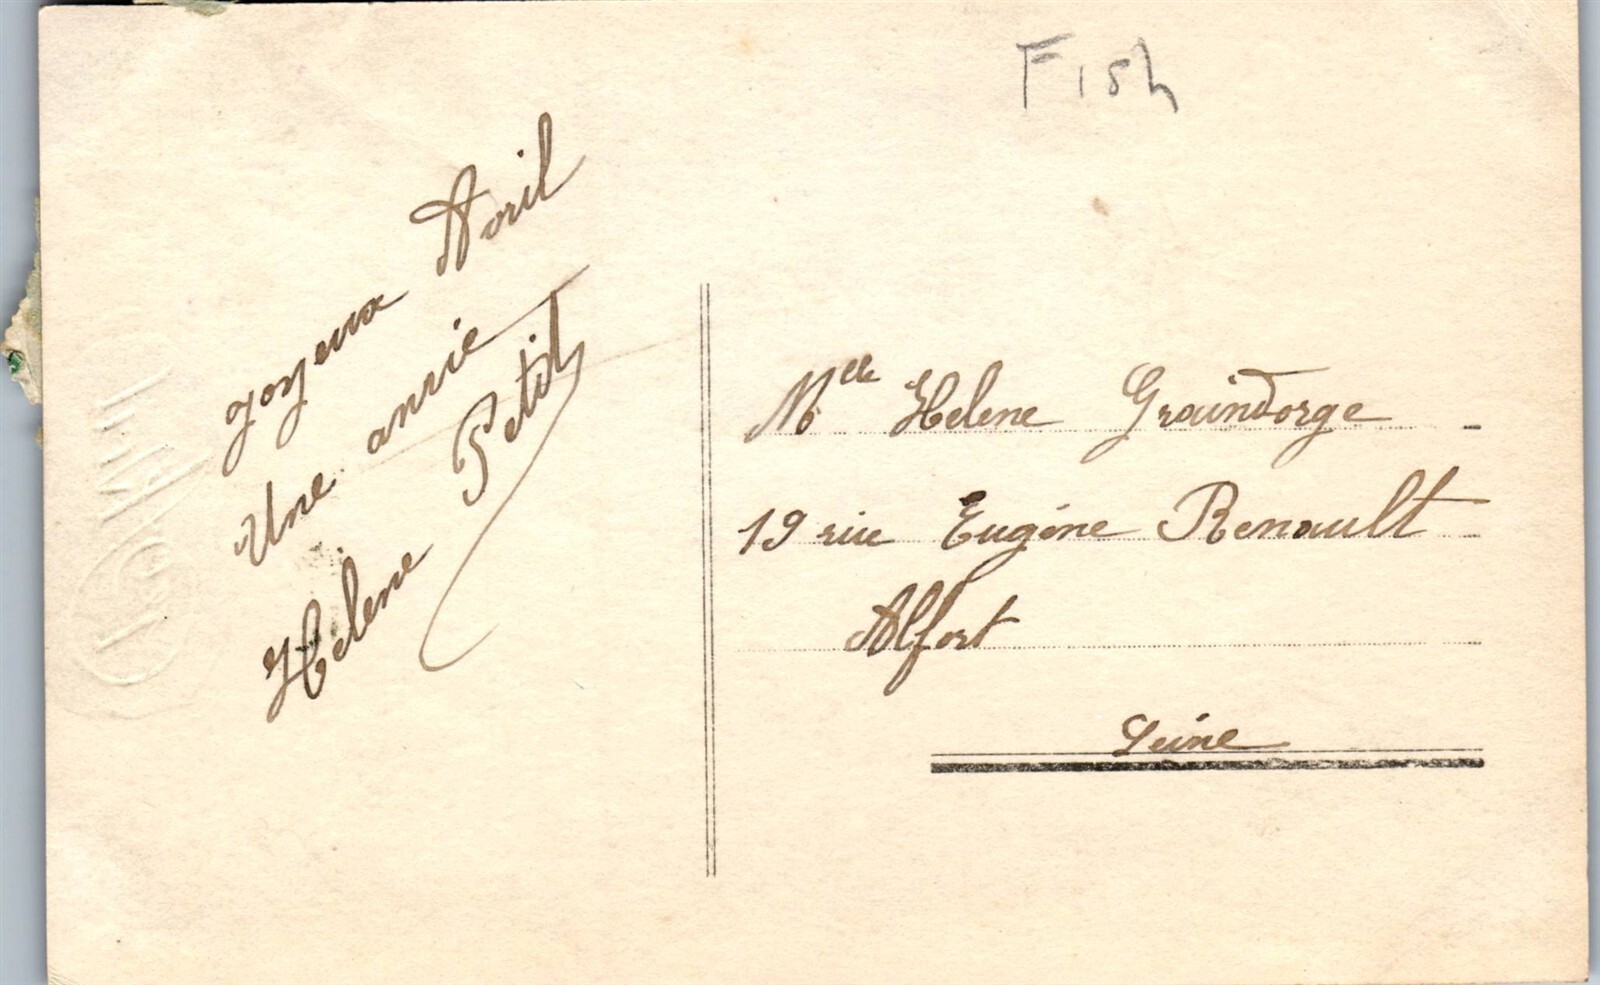 Fish
Joyeux Avril
Une amie
Helene Petit
Mlle Helene Graindorge
19 rue Eugène Renault
Alfort
Seine